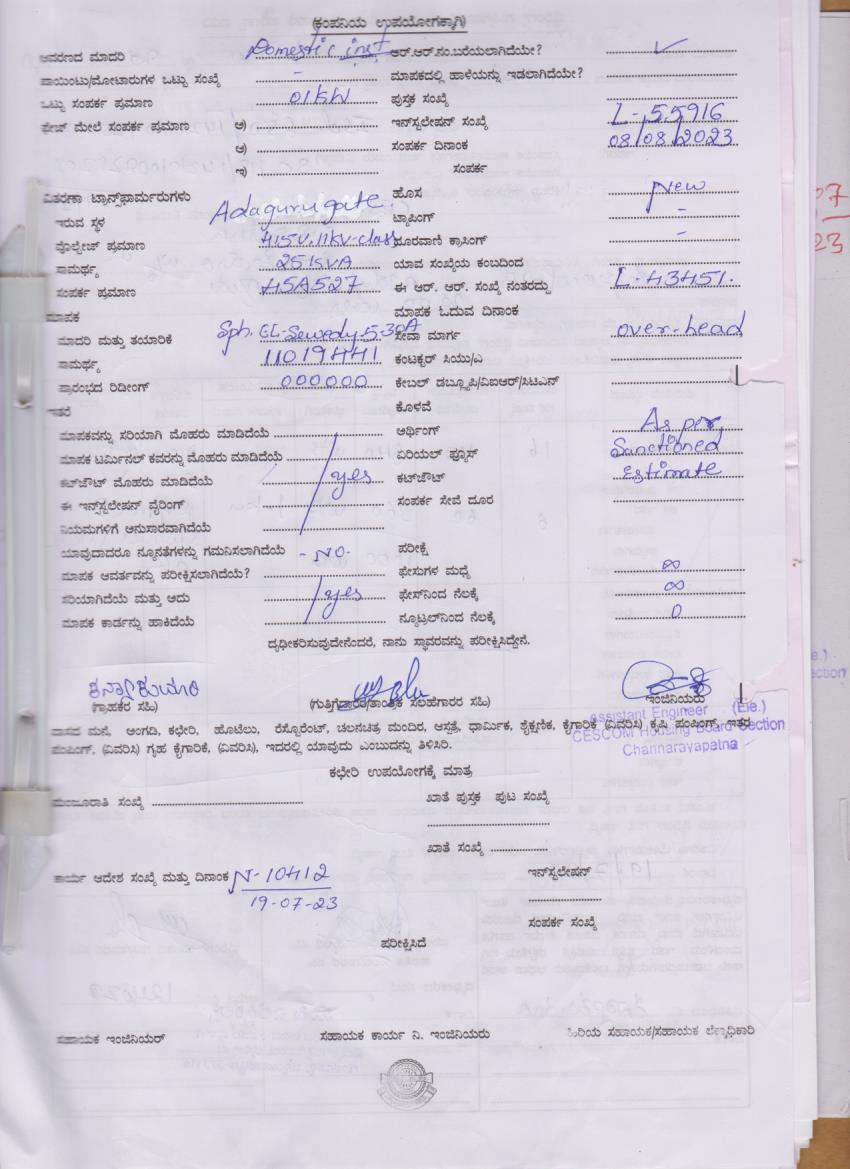 (ಕಂಪನಿಯ ಉಪಯೋಗಕ್ಕಾಗಿ)
ಆವರಣದ ಮಾದರಿ Domestic inst ಆರ್.ಆರ್.ನಂ.ಬರೆಯಲಾಗಿದೆಯೇ? ✓
ಪಾಯಿಂಟು/ಮೋಟಾರುಗಳ ಒಟ್ಟು ಸಂಖ್ಯೆ - ಮಾಪಕದಲ್ಲಿ ಹಾಳೆಯನ್ನು ಇಡಲಾಗಿದೆಯೇ?
ಒಟ್ಟು ಸಂಪರ್ಕ ಪ್ರಮಾಣ 01KW ಪುಸ್ತಕ ಸಂಖ್ಯೆ
ಫೇಜ್ ಮೇಲೆ ಸಂಪರ್ಕ ಪ್ರಮಾಣ ಅ) ಇನ್‌ಸ್ಟಲೇಷನ್ ಸಂಖ್ಯೆ L-55916
ಆ) ಸಂಪರ್ಕ ದಿನಾಂಕ 08/08/2023
ಇ) ಸಂಪರ್ಕ
ವಿತರಣಾ ಟ್ರಾನ್ಸ್‌ಫಾರ್ಮರುಗಳು ಹೊಸ New
ಇರುವ ಸ್ಥಳ Adaguru gate. ಟ್ಯಾಪಿಂಗ್ -
ವೊಲ್ಟೇಜ್ ಪ್ರಮಾಣ 415V, 11KV-class ದೂರವಾಣಿ ಕ್ರಾಸಿಂಗ್ -
ಸಾಮರ್ಥ್ಯ 25KVA ಯಾವ ಸಂಖ್ಯೆಯ ಕಂಬದಿಂದ
ಸಂಪರ್ಕ ಪ್ರಮಾಣ HSA527 ಈ ಆರ್. ಆರ್. ಸಂಖ್ಯೆ ನಂತರದ್ದು L-43451.
ಮಾಪಕ ಮಾಪಕ ಓದುವ ದಿನಾಂಕ
ಮಾದರಿ ಮತ್ತು ತಯಾರಿಕೆ Sph. EL-Sewedy-5-30A ಸೇವಾ ಮಾರ್ಗ over-head
ಸಾಮರ್ಥ್ಯ 11019441 ಕಂಟಕ್ಟರ್ ಸಿಯು/ಎ
ಪ್ರಾರಂಭದ ರಿಡೀಂಗ್ 000000 ಕೇಬಲ್ ಡಬ್ಲ್ಯೂಪಿ/ವಿಐಆರ್/ಸಿಟಿಎಸ್
ಇತರೆ ಕೊಳವೆ
ಮಾಪಕವನ್ನು ಸರಿಯಾಗಿ ಮೊಹರು ಮಾಡಿದೆಯೆ ಅರ್ಥಿಂಗ್ As per,
ಮಾಪಕ ಟರ್ಮಿನಲ್ ಕವರನ್ನು ಮೊಹರು ಮಾಡಿದೆಯೆ ಏರಿಯಲ್ ಫ್ಯೂಸ್ Sanctioned
ಕಟ್‌ಔಟ್ ಮೊಹರು ಮಾಡಿದೆಯೆ yes ಕಟ್‌ಔಟ್ Estimate
ಈ ಇನ್‌ಸ್ಟಲೇಷನ್ ವೈರಿಂಗ್ ಸಂಪರ್ಕ ಸೇವೆ ದೂರ
ನಿಯಮಗಳಿಗೆ ಅನುಸಾರವಾಗಿದೆಯೆ
ಯಾವುದಾದರೂ ನ್ಯೂನತೆಗಳನ್ನು ಗಮನಿಸಲಾಗಿದೆಯೆ - NO- ಪರೀಕ್ಷೆ
ಮಾಪಕ ಆವರ್ತವನ್ನು ಪರೀಕ್ಷಿಸಲಾಗಿದೆಯೆ? ಫೇಸುಗಳ ಮಧ್ಯೆ ∞
ಸರಿಯಾಗಿದೆಯೆ ಮತ್ತು ಅದು yes ಫೇಸ್‌ನಿಂದ ನೆಲಕ್ಕೆ ∞
ಮಾಪಕ ಕಾರ್ಡನ್ನು ಹಾಕಿದೆಯೆ ನ್ಯೂಟ್ರಲ್‌ನಿಂದ ನೆಲಕ್ಕೆ 0
ದೃಢೀಕರಿಸುವುದೇನೆಂದರೆ, ನಾನು ಸ್ಥಾವರವನ್ನು ಪರೀಕ್ಷಿಸಿದ್ದೇನೆ.
(ಗ್ರಾಹಕರ ಸಹಿ) (ಗುತ್ತಿಗೆದಾರರ/ತಾಂತ್ರಿಕ ಸಲಹೆಗಾರರ ಸಹಿ) ಇಂಜಿನಿಯರು
Assistant Engineer (Ele.)
ವಾಸದ ಮನೆ, ಅಂಗಡಿ, ಕಛೇರಿ, ಹೊಟೇಲು, ರೆಸ್ಟೋರೆಂಟ್, ಚಲನಚಿತ್ರ ಮಂದಿರ, ಆಸ್ಪತ್ರೆ, ಧಾರ್ಮಿಕ, ಶೈಕ್ಷಣಿಕ, ಕೈಗಾರಿಕೆ (ವಿವರಿಸಿ) ಕೃಷಿ ಪಂಪಿಂಗ್, ಇತರ
CESCOM Housing Board Section
ಪಂಪಿಂಗ್, (ವಿವರಿಸಿ) ಗೃಹ ಕೈಗಾರಿಕೆ, (ವಿವರಿಸಿ), ಇದರಲ್ಲಿ ಯಾವುದು ಎಂಬುದನ್ನು ತಿಳಿಸಿರಿ.
Channarayapatna
ಕಛೇರಿ ಉಪಯೋಗಕ್ಕೆ ಮಾತ್ರ
ಮಂಜೂರಾತಿ ಸಂಖ್ಯೆ ಖಾತೆ ಪುಸ್ತಕ ಪುಟ ಸಂಖ್ಯೆ
ಖಾತೆ ಸಂಖ್ಯೆ
ಕಾರ್ಯ ಆದೇಶ ಸಂಖ್ಯೆ ಮತ್ತು ದಿನಾಂಕ N-10412 ಇನ್‌ಸ್ಟಲೇಷನ್
19-07-23
ಸಂಪರ್ಕ ಸಂಖ್ಯೆ
ಪರೀಕ್ಷಿಸಿದೆ
ಸಹಾಯಕ ಇಂಜಿನಿಯರ್ ಸಹಾಯಕ ಕಾರ್ಯ ನಿ. ಇಂಜಿನಿಯರು ಹಿರಿಯ ಸಹಾಯಕ/ಸಹಾಯಕ ಲೆಕ್ಕಾಧಿಕಾರಿ